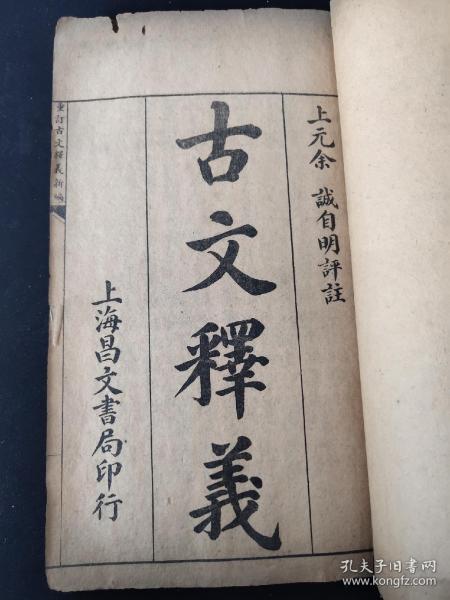 上元余 誠自明評註
古文釋義
上海昌文書局印行
重訂古文釋義新編
孔夫子旧书网
www.kongfz.com